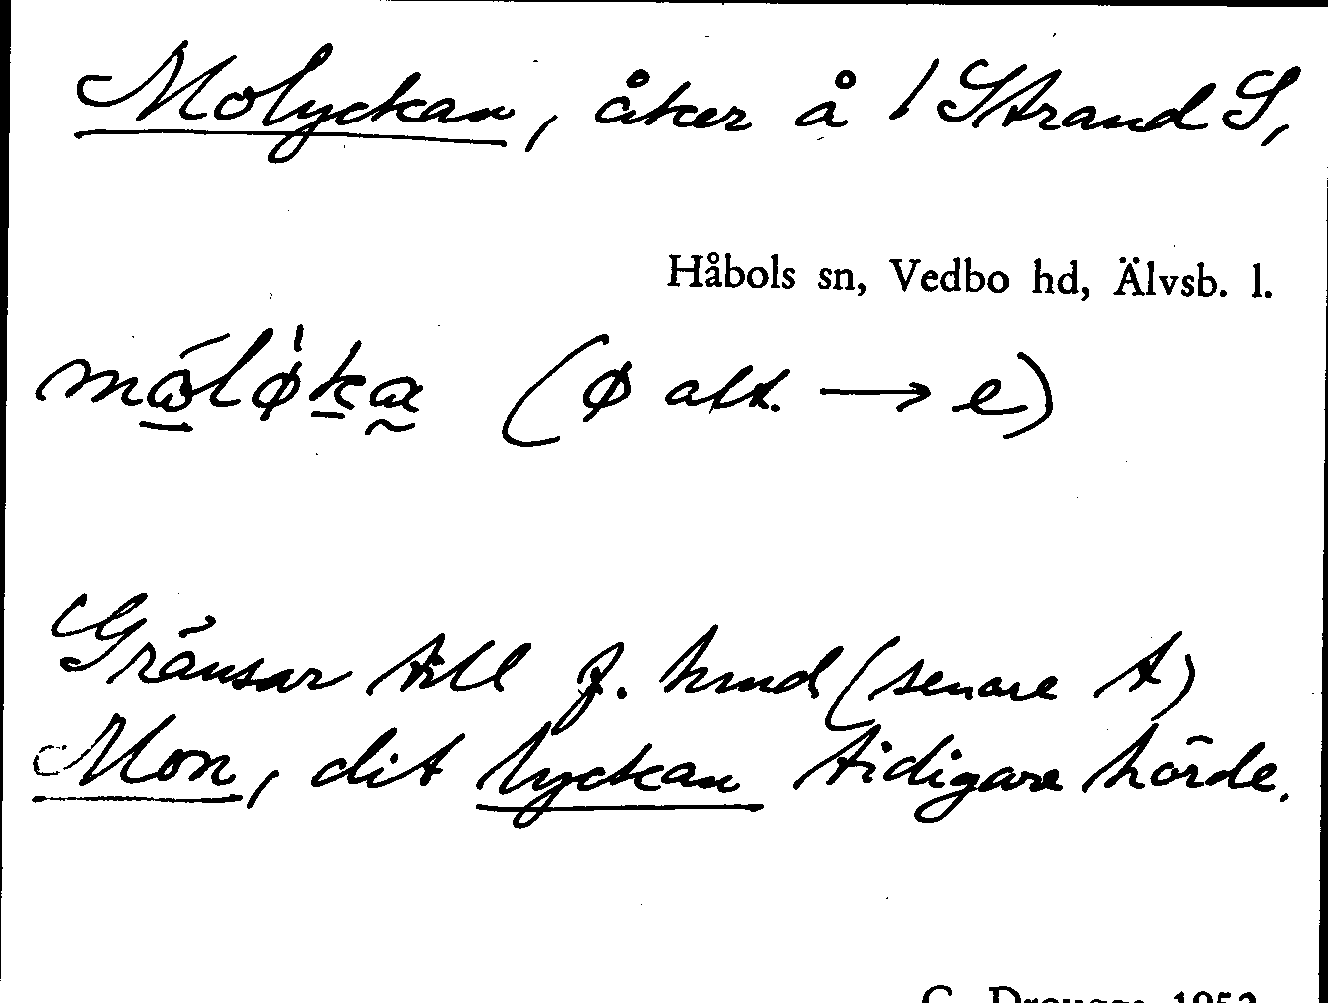 Molyckan, åker å 1 Strand S,
Håbols sn, Vedbo hd, Älvsb. l.
(ø alt. → e)
Gränsar till f. hmd (senare t)
Mon, dit lyckan tidigare hörde.